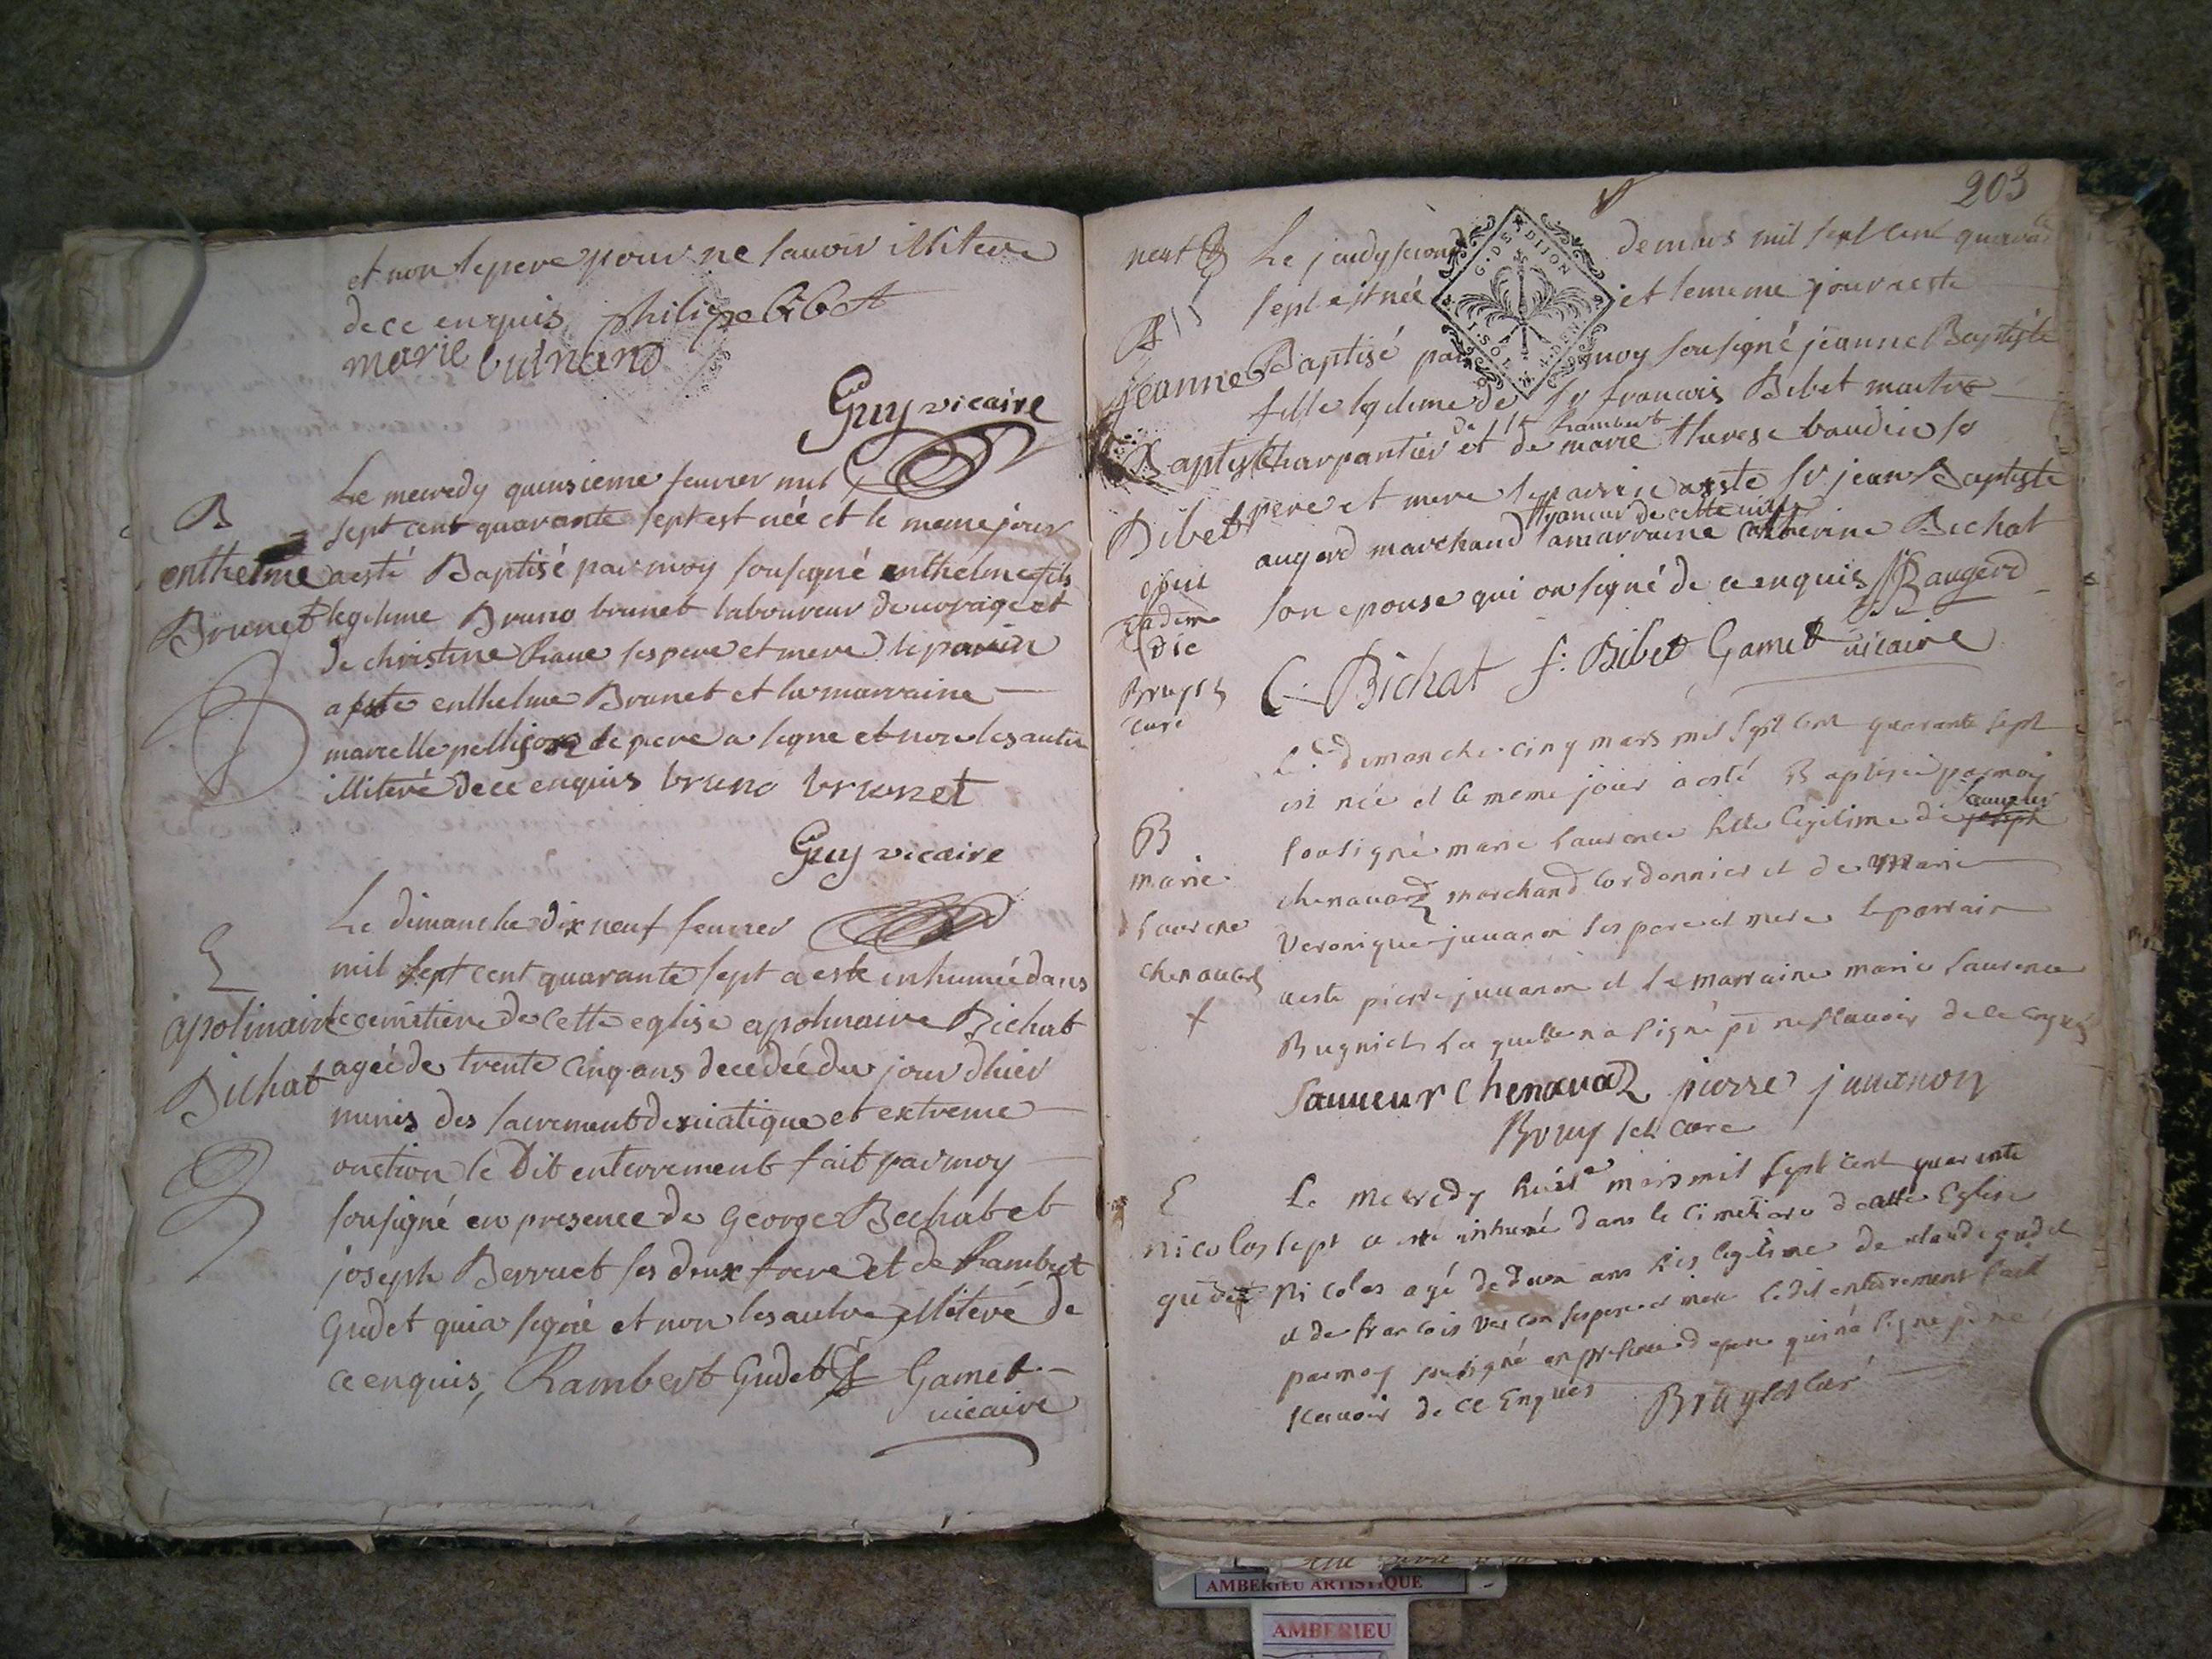 et non le pere pour ne savoir illitere
de ce enquis philipe bibet
marie
Guy vicaire
B
enthelme
Brunet
Le mecredy quinsieme fevrier mil
sept cent quarante sept est née et le meme jour
aesté Baptisé par moy sousigné enthelme fils
legitime Bruno brunet laboureur de
de christine Rave ses pere et mere le parin
a este enthelme Brunet et la marraine
marcelle pellison le pere a signe et non les autre
illiteré de ce enquis bruno brunet
Guy vicaire
E
apolinaire
Bichat
Le dimanche dix neuf fevrier
mil sept cent quarante sept a este inhumée dans
le cemetiere de cette eglise apolinaire Bichat
agée de trente cinq ans decedée du jour dhier
munis des sacrement de viatique et extreme
onction le Dit enterrement fait par moy
sousigné en presence de George Bechat et
joseph Berruet ses deux frere et de Rambert
Gudet qui a signé et non les autre illiteré de
ce enquis, Rambert Gudet Gamet
vicaire
203
G. DE DIJON
neuf
B
jeanne
Baptiste
Bibet
obiit
eadem
die
Bruyset
curé
Le jeudy second de mars mil sept cent quarante
sept est née et le meme jour aeste
Baptisé par moy sousigné jeanne Baptiste
fille legitime de sr francois Bibet maitre
charpantier de st Rambert et de marie therese baudin ses
pere et mere le parrin aeste sr jean Baptiste
augerd marchand de cette ville la marraine catherine Bichat
son epouse qui on signé de ce enquis JB augerd
C. Bichat f. Bibet Gamet vicaire
B
marie
laurence
chenavard
+
Le dimanche cinq mars mil sept cent quarante sept
est née et le meme jour a esté Baptisée par moy
sousigné marie laurence fille legitime de joseph sauveur
chenavard marchand cordonnier et de Marie
Veronique juvanon ses pere et mere le parrain
aeste pierre juvanon et la marraine marie laurence
Bugnich laquelle na signé pr ne sçavoir de ce enquis
sauveur chenavard pierre juvanon
Bruyset curé
E
nicolas
gudet
Le mecredy huit mars mil sept cent quarente
sept a este inhumé dans le cimetiere de cette Eglise
Nicolas agé de deux ans fils legitime de claude gudet
et de francois vercon ses pere et mere le dit enterement fait
par moy sousigné en presence du pere qui na signé pr ne
scavoir de ce Enquis Bruyset curé
AMBERIEU ARTISTIQUE
AMBERIEU